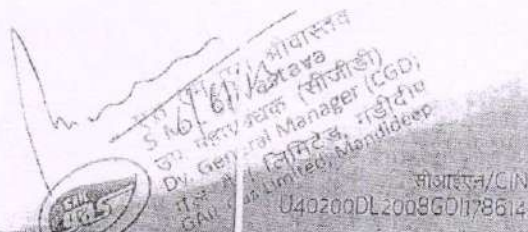 श्रीवास्तव
उप महाप्रबंधक (सीजीडी)
Dy. General Manager (CGD)
लिमिटेड, मंडीदीप
GAIL Gas Limited, Mandideep
सीआईएन/CIN
U40200DL2008GOI178614